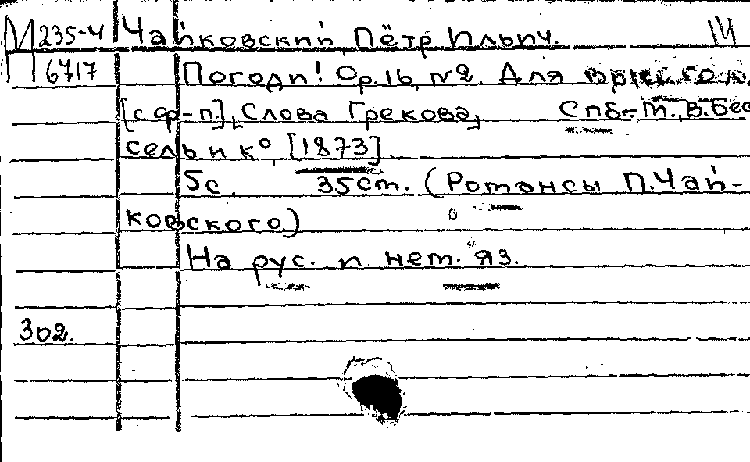 М 235-4 Чайковский, Пётр Ильич.
6717 Погоди! Op.16, №2. Для
[с ф-п], Слова Грекова, Спб.-М., В.Бес
сель и к° [1873]
5с. 35cm. (Романсы П.Чай-
ковского)
На рус. и нем. яз.
302.